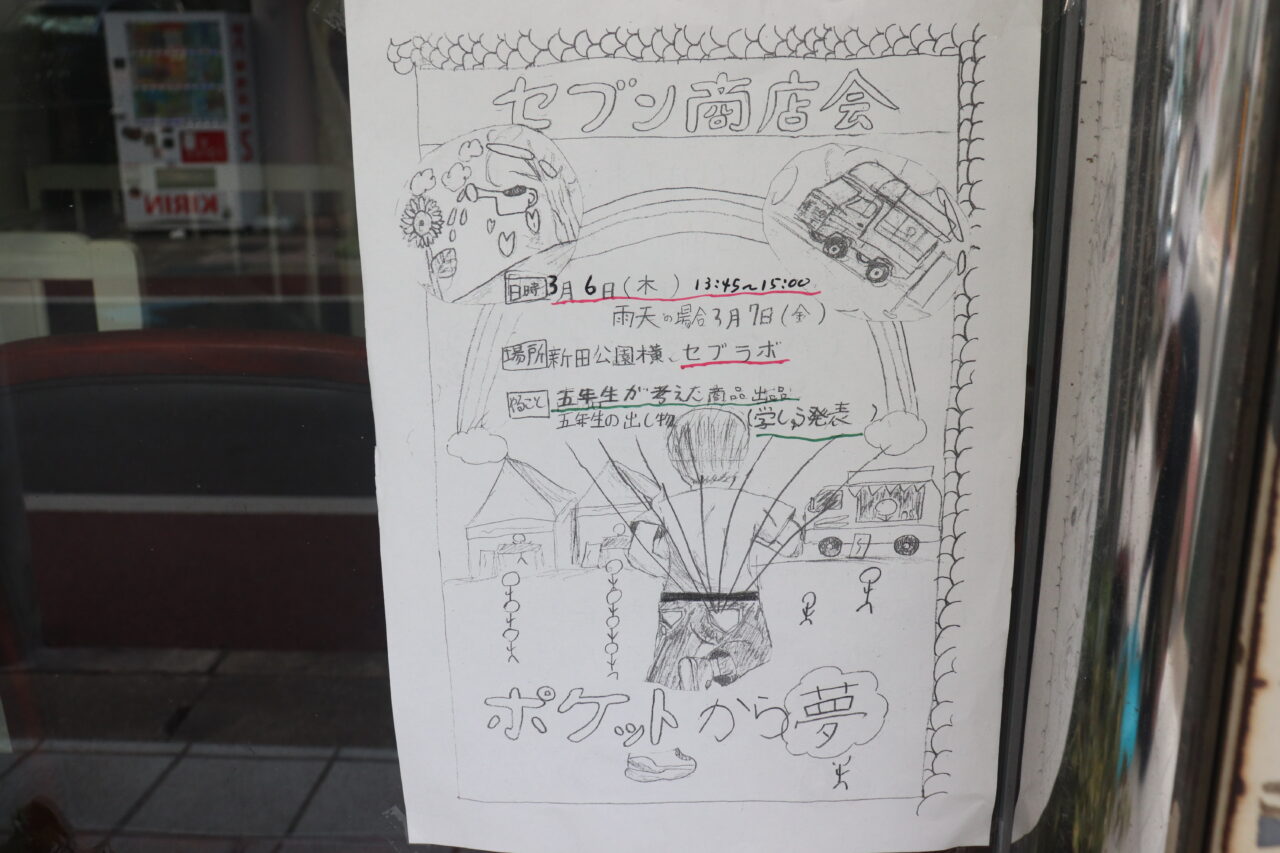 セブン商店会
日時 3月6日(木) 13:45~15:00
雨天の場合3月7日(金)
場所 新田公園横、セブラボ
やること 五年生が考えた商品出品
五年生の出し物(学しゅう発表)
ポケットから夢
KIRIN